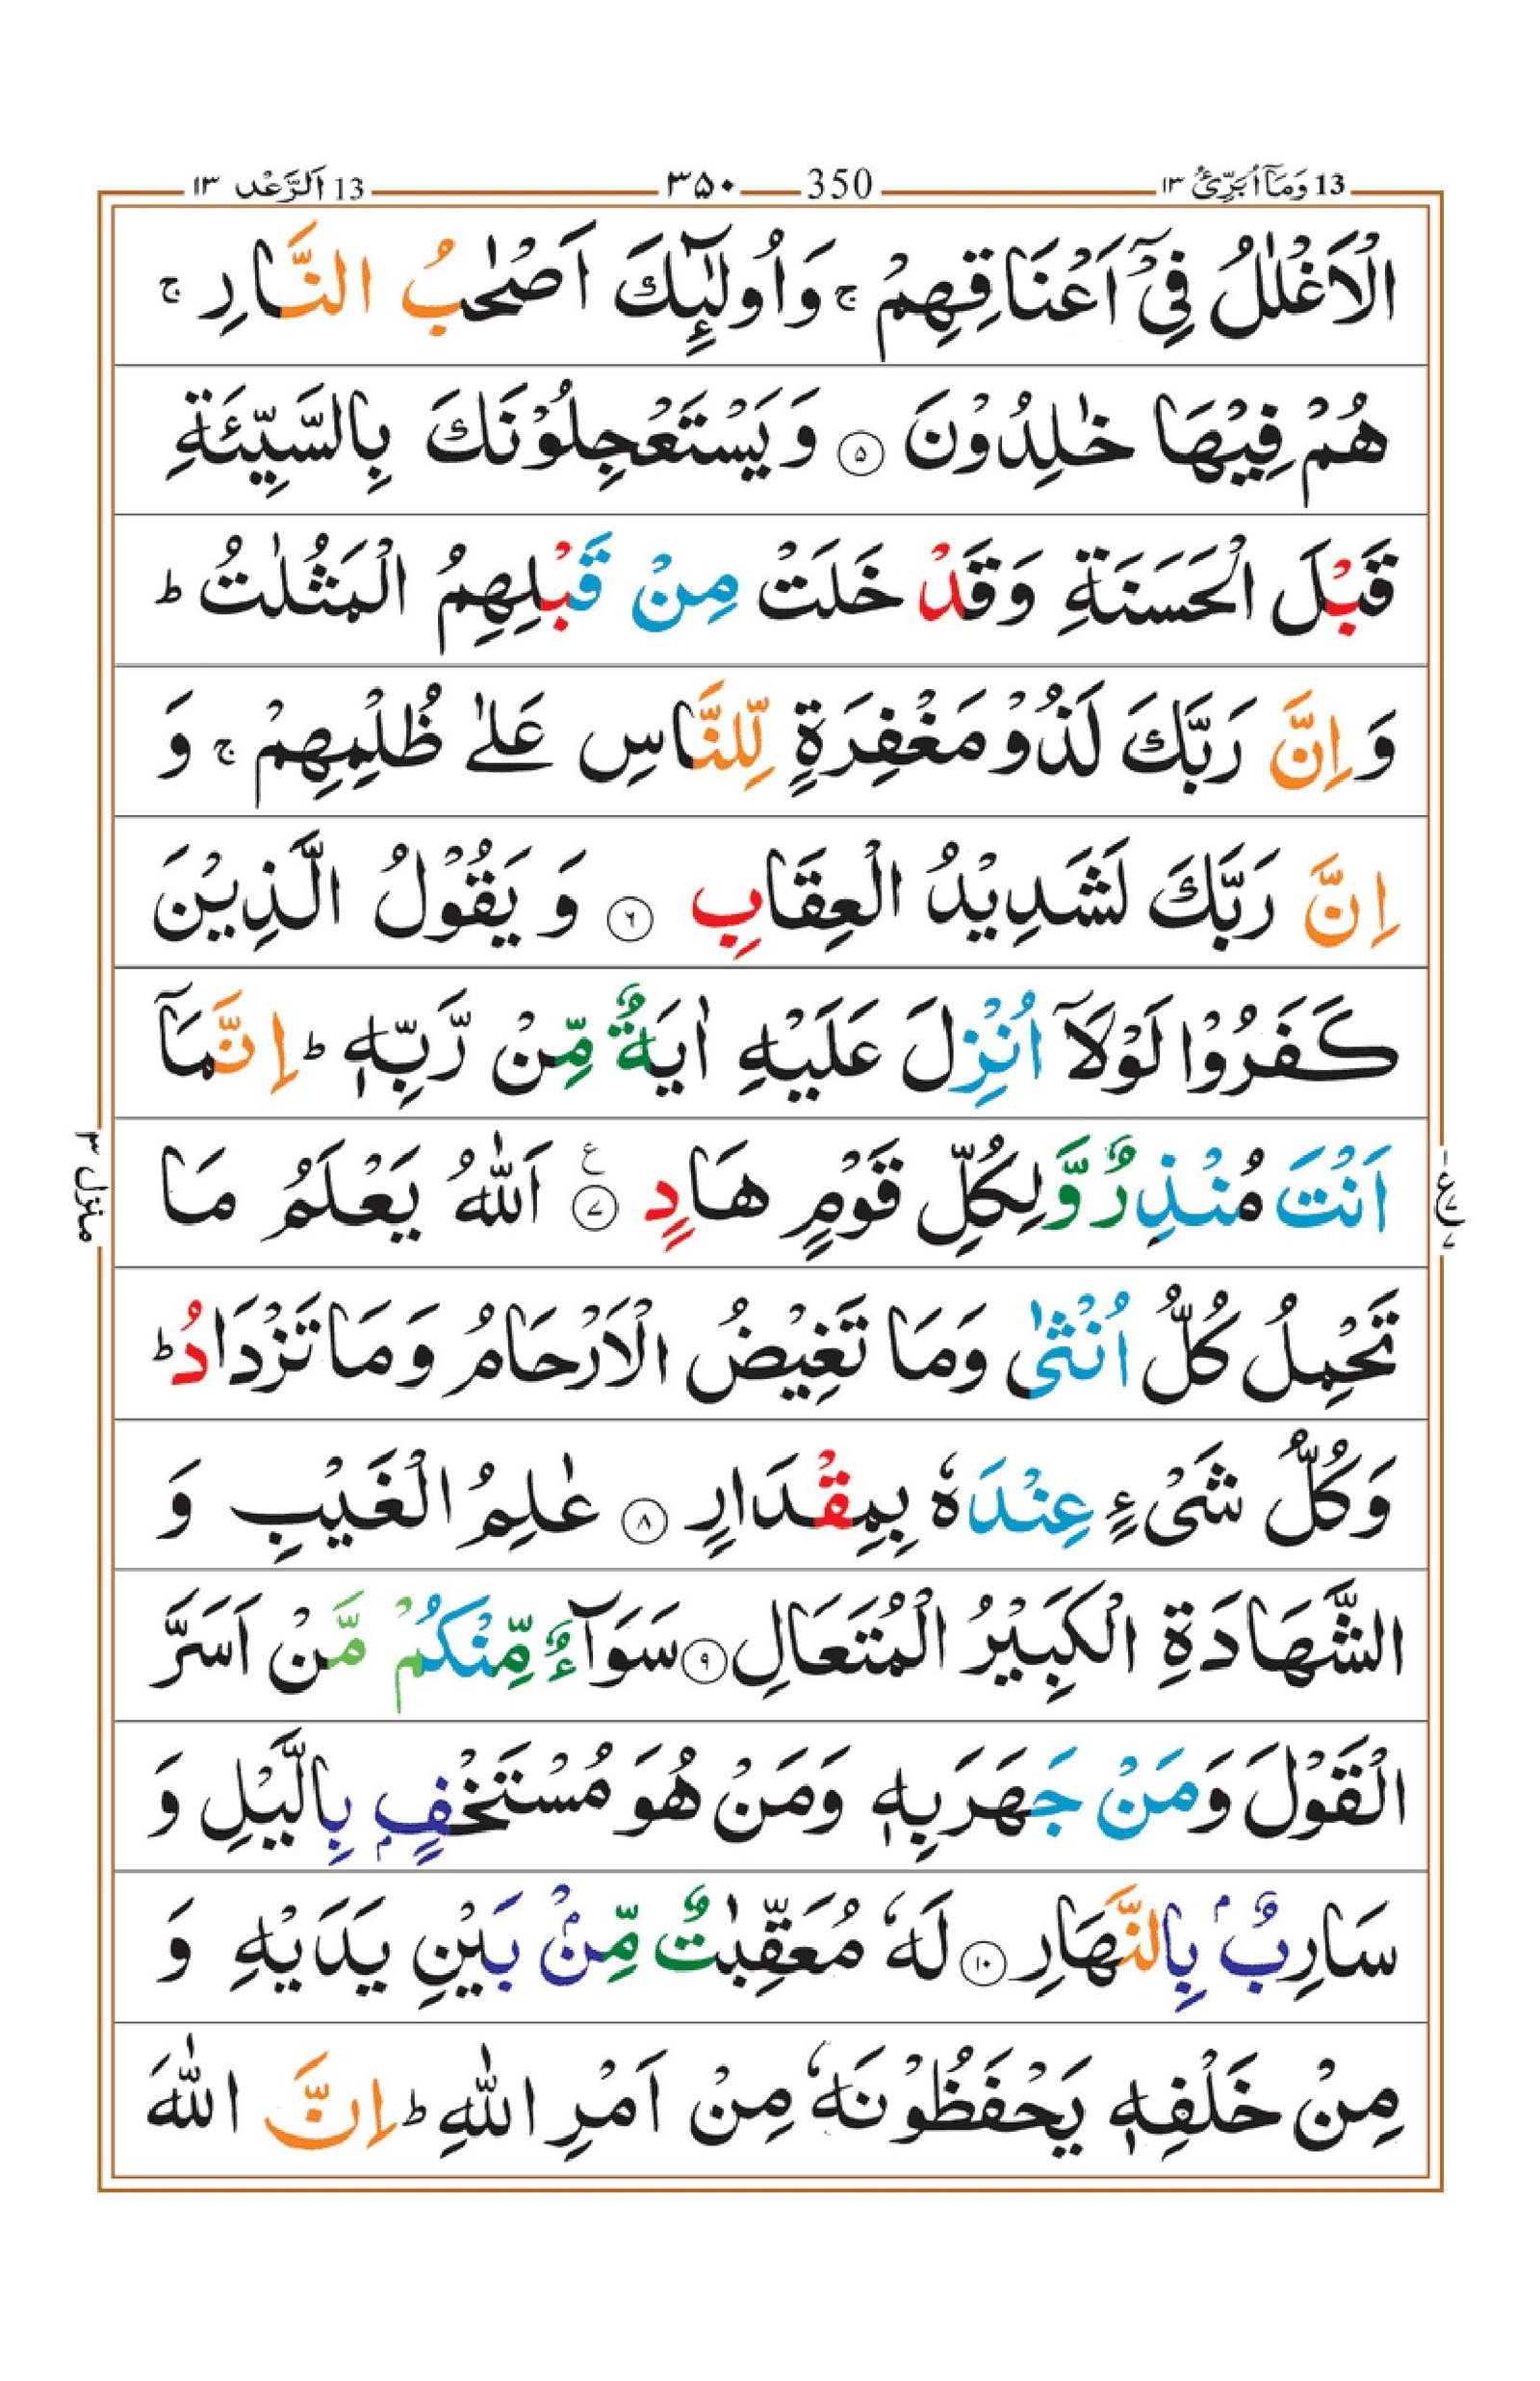 13 وَمَآ اُبَرِّئُ ١٣ 350 ٣۵٠ 13 اَلرَّعْد ١٣
الْاَغْلٰلُ فِيْۤ اَعْنَاقِهِمْ ۚ وَاُولٰٓئِكَ اَصْحٰبُ النَّارِ ۚ
هُمْ فِيْهَا خٰلِدُوْنَ ۵ وَيَسْتَعْجِلُوْنَكَ بِالسَّيِّئَةِ
قَبْلَ الْحَسَنَةِ وَقَدْ خَلَتْ مِنْ قَبْلِهِمُ الْمَثُلٰتُ ؕ
وَاِنَّ رَبَّكَ لَذُوْ مَغْفِرَةٍ لِّلنَّاسِ عَلٰى ظُلْمِهِمْ ۚ وَ
اِنَّ رَبَّكَ لَشَدِيْدُ الْعِقَابِ ٦ وَيَقُوْلُ الَّذِيْنَ
كَفَرُوْا لَوْلَاۤ اُنْزِلَ عَلَيْهِ اٰيَةٌ مِّنْ رَّبِّهٖ ؕ اِنَّمَاۤ
اَنْتَ مُنْذِرٌ وَّلِكُلِّ قَوْمٍ هَادٍ ٧ ع اَللّٰهُ يَعْلَمُ مَا
تَحْمِلُ كُلُّ اُنْثٰى وَمَا تَغِيْضُ الْاَرْحَامُ وَمَا تَزْدَادُ ؕ
وَكُلُّ شَيْءٍ عِنْدَهٗ بِمِقْدَارٍ ٨ عٰلِمُ الْغَيْبِ وَ
الشَّهَادَةِ الْكَبِيْرُ الْمُتَعَالِ ٩ سَوَآءٌ مِّنْكُمْ مَّنْ اَسَرَّ
الْقَوْلَ وَمَنْ جَهَرَ بِهٖ وَمَنْ هُوَ مُسْتَخْفٍۭ بِالَّيْلِ وَ
سَارِبٌۢ بِالنَّهَارِ ١٠ لَهٗ مُعَقِّبٰتٌ مِّنْۢ بَيْنِ يَدَيْهِ وَ
مِنْ خَلْفِهٖ يَحْفَظُوْنَهٗ مِنْ اَمْرِ اللّٰهِ ؕ اِنَّ اللّٰهَ
منزل ٣